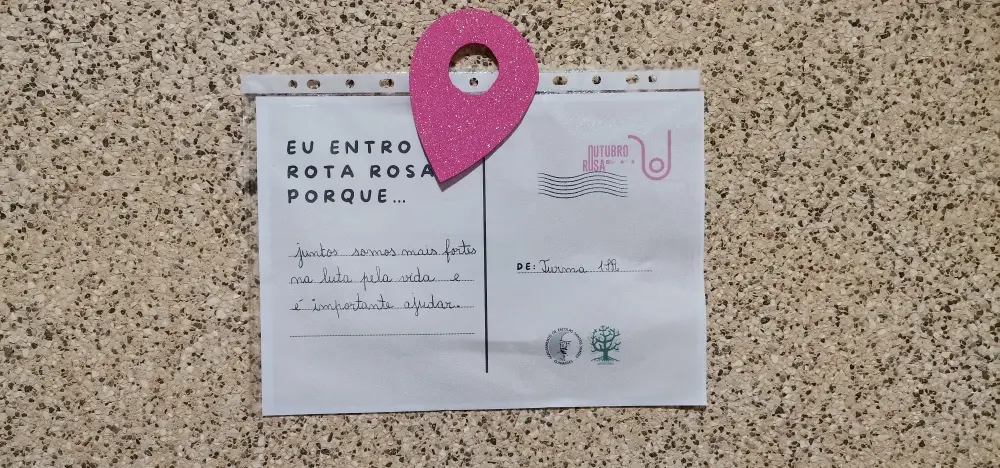 EU ENTRO
ROTA ROSA
PORQUE...
juntos somos mais fortes
na luta pela vida e
é importante ajudar.
OUTUBRO
ROSA
DE: Turma